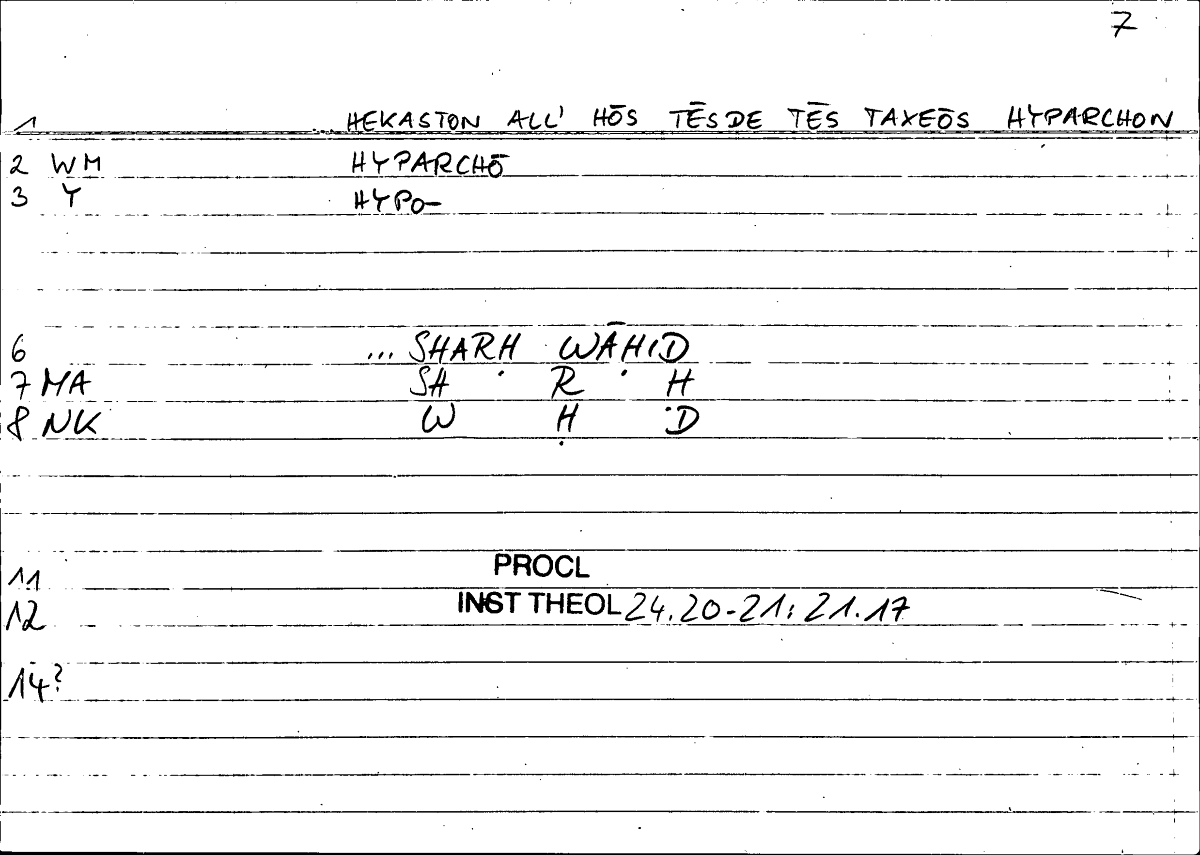 7
1 HEKASTON ALL' HŌS TĒSDE TĒS TAXEŌS HYPARCHON
2 WM HYPARCHŌ
3 Y HYPO-
6 ... SHARḤ WĀḤID
7 MA SH R Ḥ
8 NK W Ḥ D
11 PROCL
12 INST THEOL 24.20-21; 21.17
14?